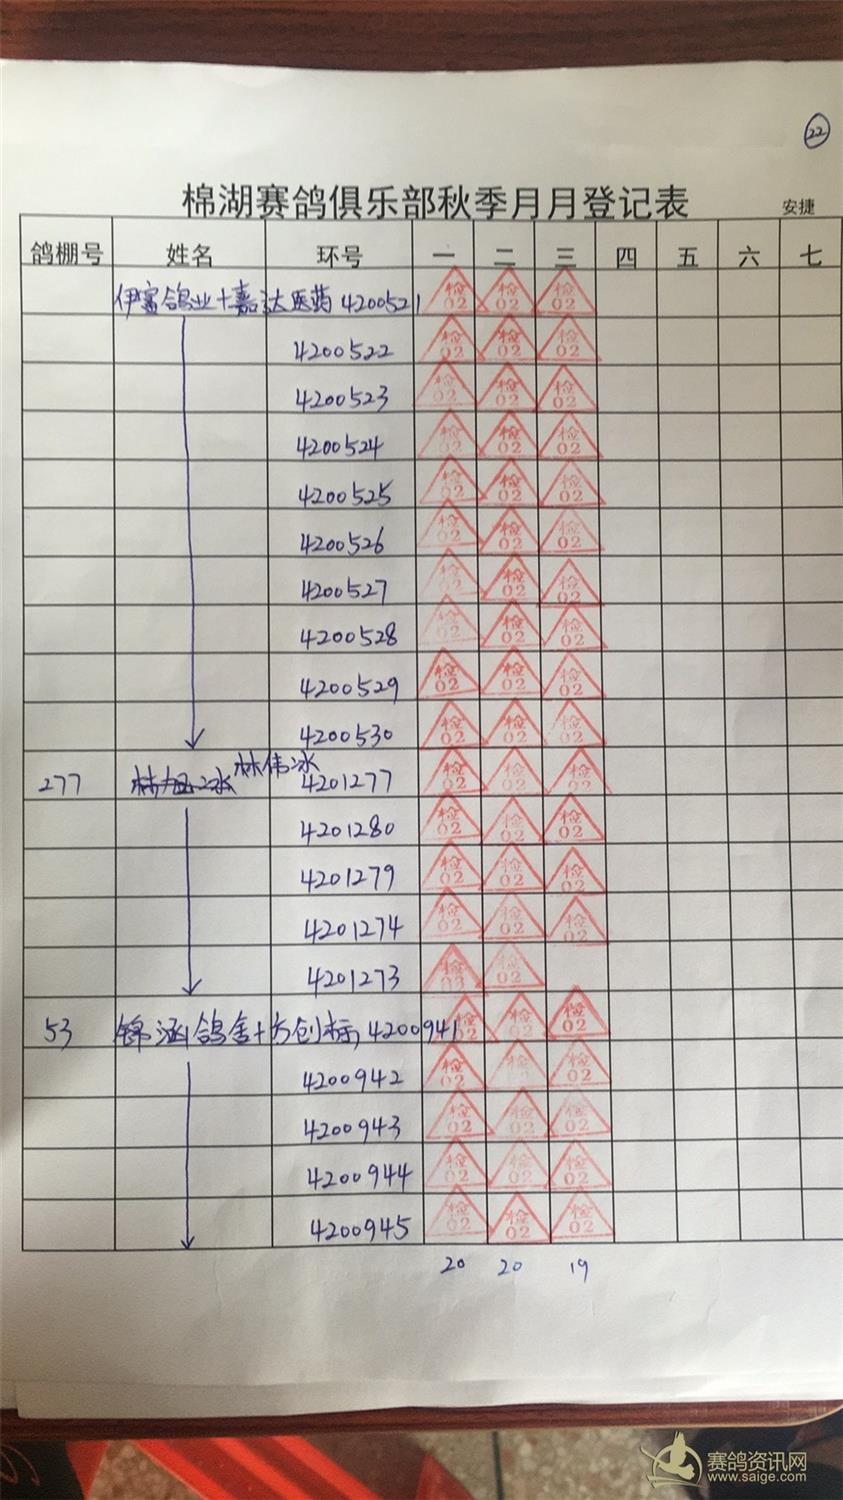 22
棉湖赛鸽俱乐部秋季月月登记表 安捷
鸽棚号 姓名 环号 一 二 三 四 五 六 七
伊富鸽业+嘉达医药 4200521 检02 检02 检02
4200522 检02 检02 检02
4200523 检02 检02 检02
4200524 检02 检02 检02
4200525 检02 检02 检02
4200526 检02 检02 检02
4200527 检02 检02 检02
4200528 检02 检02 检02
4200529 检02 检02 检02
4200530 检02 检02 检02
277 林伟冰 4201277 检02 检02 检02
4201280 检02 检02 检02
4201279 检02 检02 检02
4201274 检02 检02 检02
4201273 检02 检02
53 锦涵鸽舍+方创标 4200941 检02 检02 检02
4200942 检02 检02 检02
4200943 检02 检02 检02
4200944 检02 检02 检02
4200945 检02 检02 检02
20 20 19
赛鸽资讯网
www.saige.com